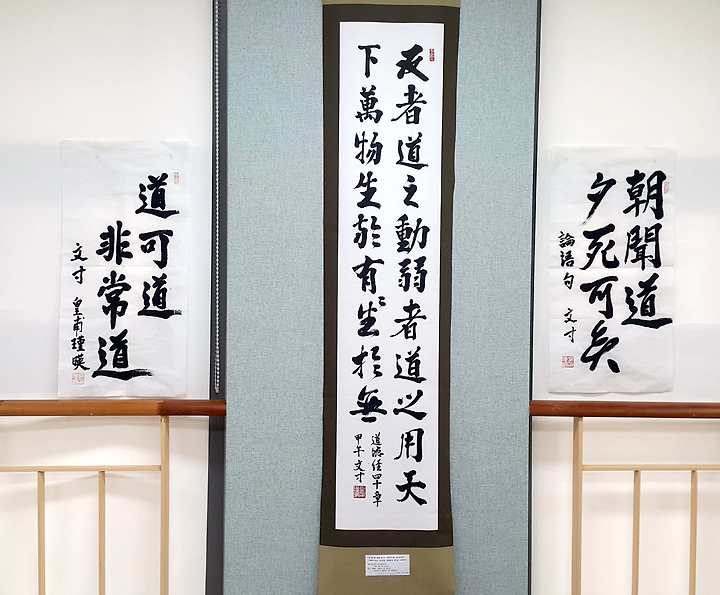 朝聞道
夕死可矣
論語句 文寸
反者道之動弱者道之用天
下萬物生於有〻生於無
道德經四十章
甲午文寸
道可道
非常道
文寸 皇甫